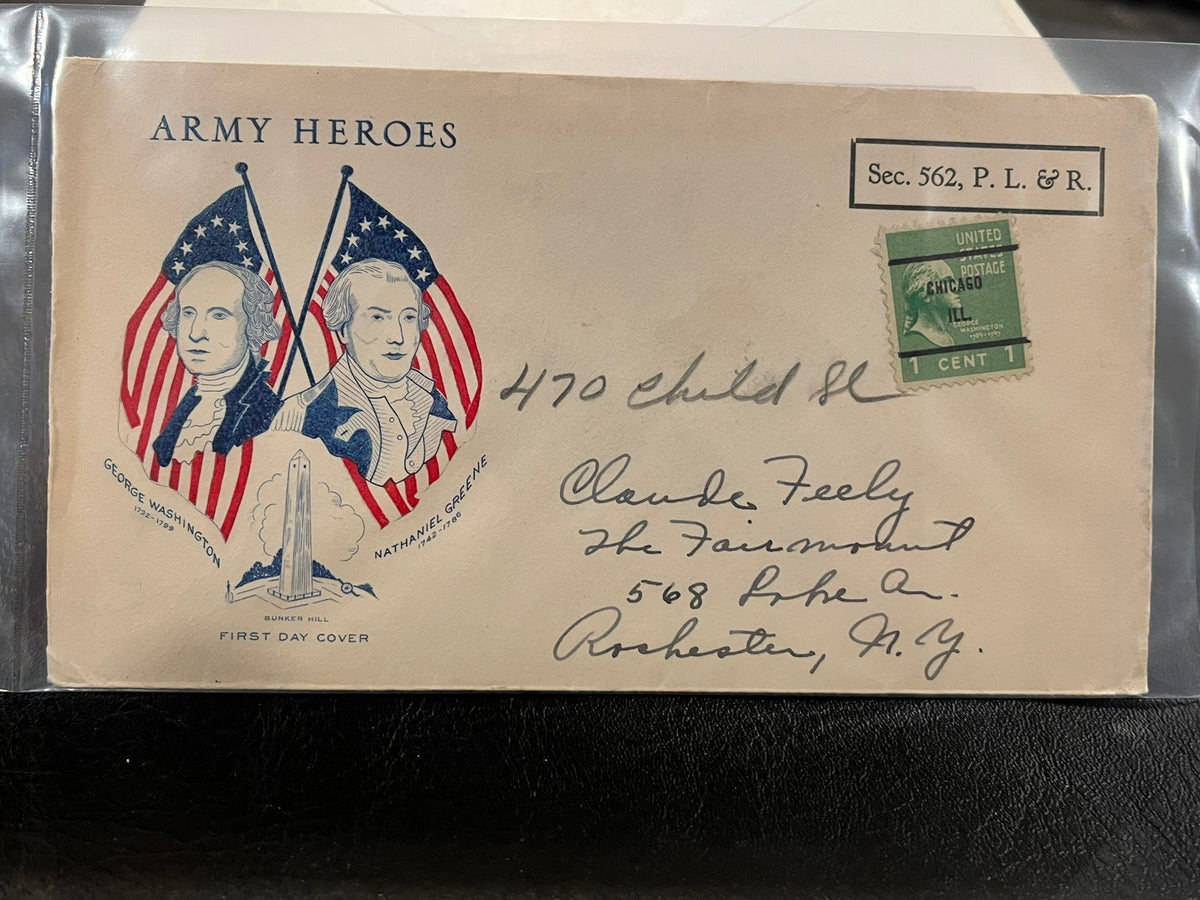 ARMY HEROES
Sec. 562, P. L. & R.
UNITED
STATES
POSTAGE
CHICAGO
ILL.
GEORGE
WASHINGTON
1789-1797
1 CENT 1
470 Child St
Claude Feely
The Fairmount
568 Lake Av.
Rochester, N.Y.
GEORGE WASHINGTON
1732-1799
NATHANIEL GREENE
1742-1786
BUNKER HILL
FIRST DAY COVER